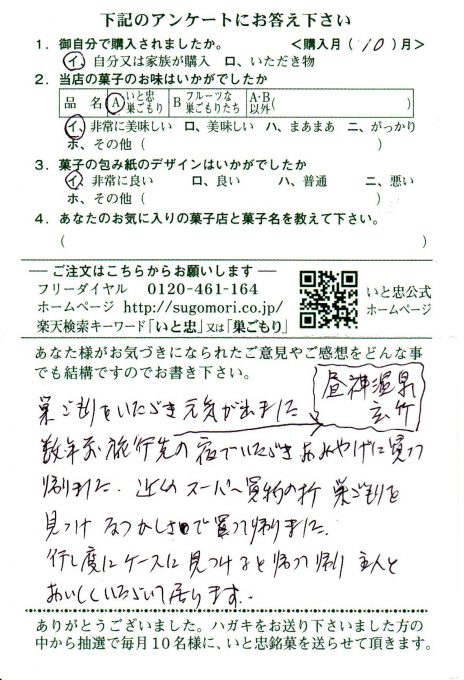 下記のアンケートにお答え下さい
1．御自分で購入されましたか。　＜購入月（ 10 ）月＞
イ、自分又は家族が購入　ロ、いただき物
2．当店の菓子のお味はいかがでしたか
品　名　A いと忠巣ごもり　B フルーツな巣ごもりたち　A・B以外（　　　）
イ、非常に美味しい　ロ、美味しい　ハ、まあまあ　ニ、がっかり
ホ、その他（　　　）
3．菓子の包み紙のデザインはいかがでしたか
イ、非常に良い　ロ、良い　ハ、普通　ニ、悪い
ホ、その他（　　　）
4．あなたのお気に入りの菓子店と菓子名を教えて下さい。
（　　　）
ご注文はこちらからお願いします
フリーダイヤル　0120-461-164
ホームページ　http://sugomori.co.jp/
楽天検索キーワード「いと忠」又は「巣ごもり」
いと忠公式
ホームページ
あなた様がお気づきになられたご意見やご感想をどんな事
でも結構ですのでお書き下さい。
昼神温泉
玄竹
巣ごもりをいただき元気が出ました
数年前旅行先の宿でいただきおみやげに買って
帰りました．近くのスーパー買物の折 巣ごもりを
見つけ なつかしさで買って帰りました．
行く度にケースに見つけると 帰り 主人と
おいしくいただいて居ります．
ありがとうございました。ハガキをお送り下さいました方の
中から抽選で毎月10名様に、いと忠銘菓を送らせて頂きます。